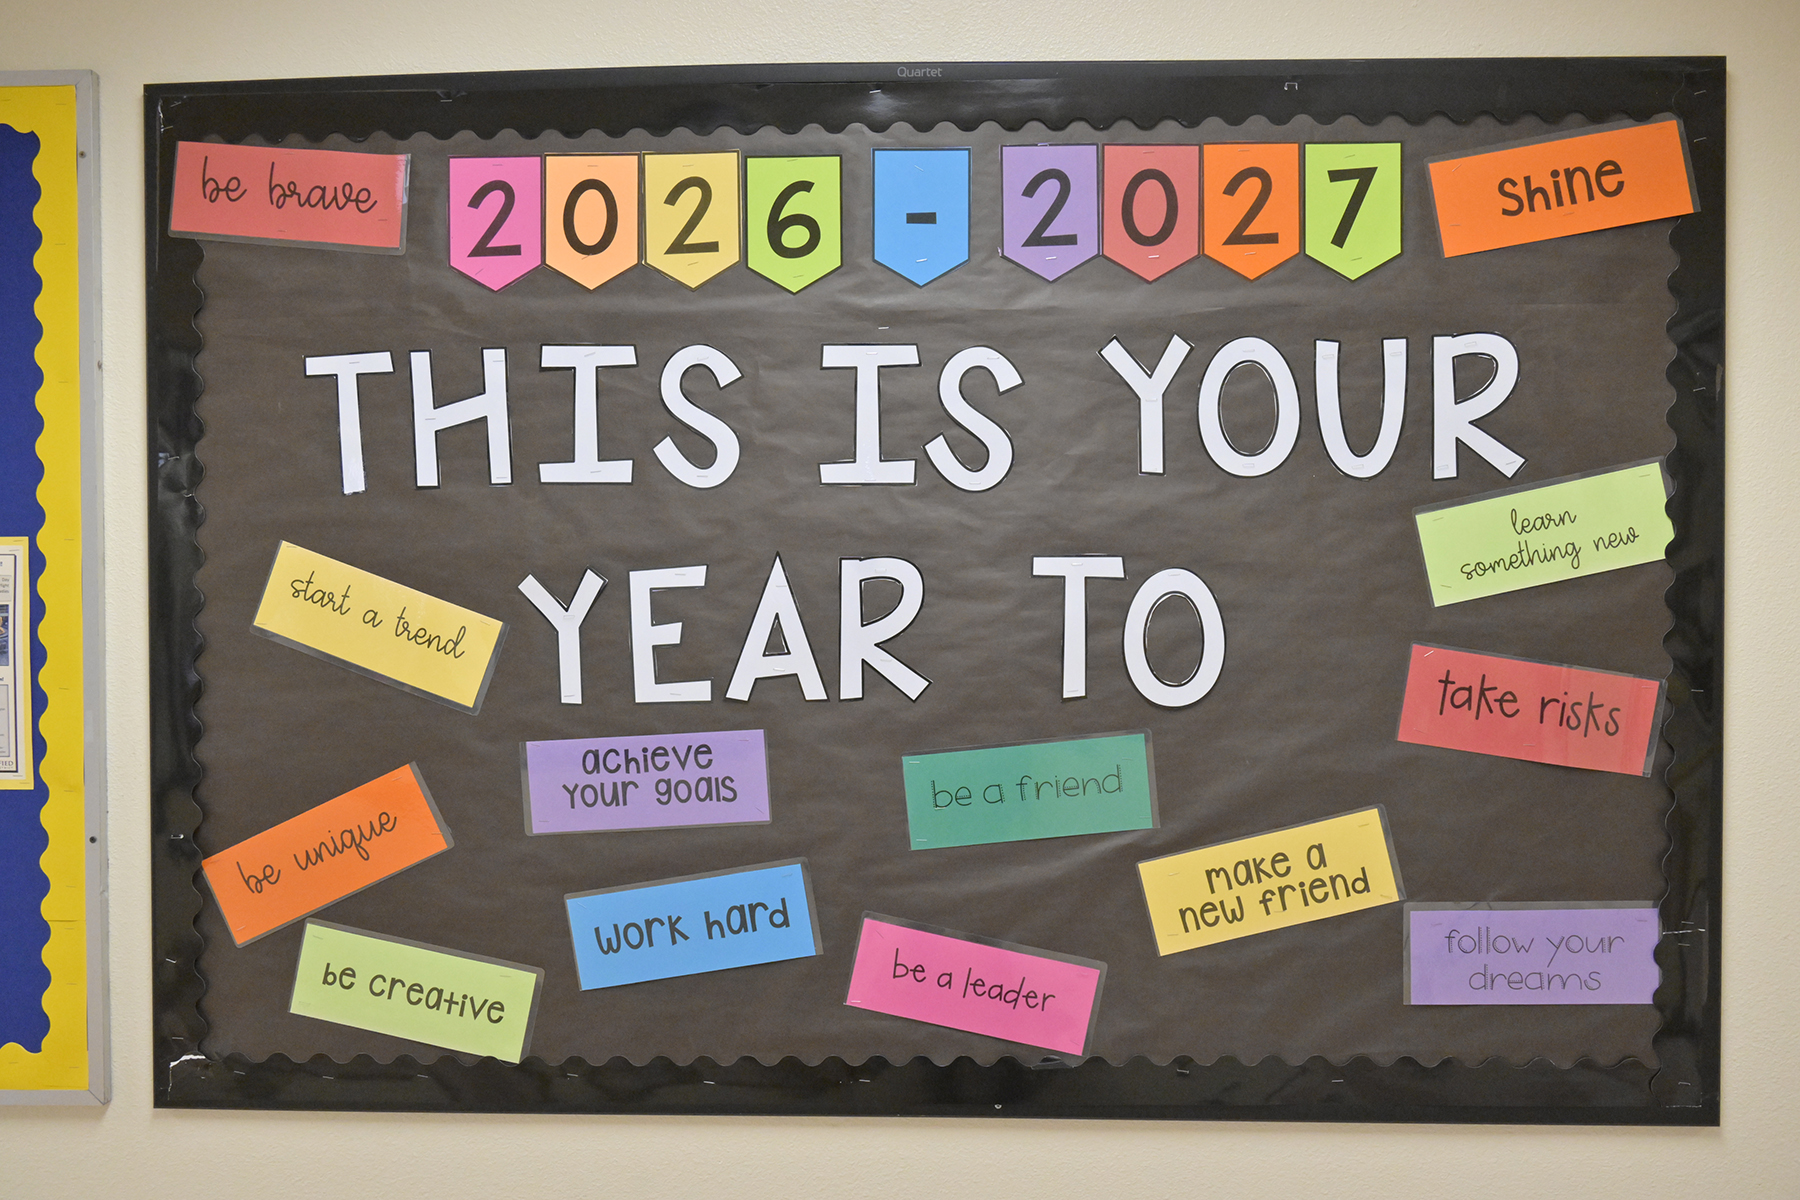 Quartet
be brave
2026 - 2027
Shine
THIS IS YOUR
YEAR TO
learn
something new
start a trend
take risks
achieve
your goals
be a friend
be unique
make a
new friend
work hard
follow your
dreams
be creative
be a leader